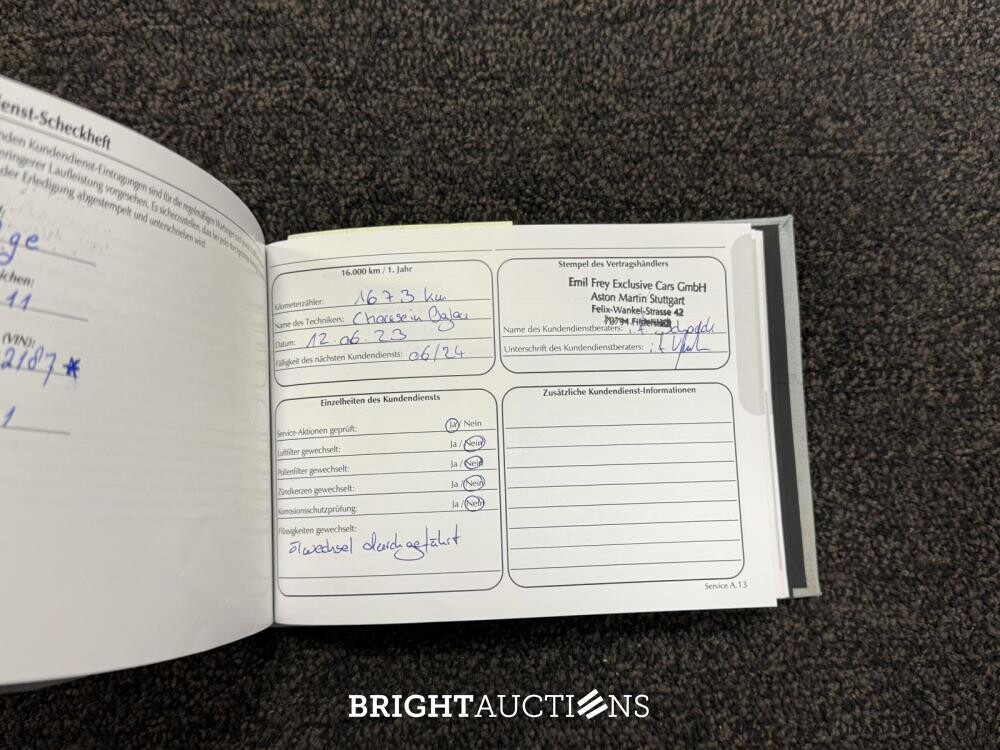 Kundendienst-Scheckheft
Kundendienst-Eintragungen sind für die regelmäßigen
Laufleistung vorgesehen. Es
der Erledigung abgestempelt und unterschrieben wird.
11
(VIN):
2187 *
1
16.000 km / 1. Jahr
Kilometerzähler: 1673 km
Name des Technikers:
Datum: 12.06.23
Fälligkeit des nächsten Kundendiensts: 06/24
Einzelheiten des Kundendiensts
Service-Aktionen geprüft: Ja / Nein
Luftfilter gewechselt: Ja / Nein
Pollenfilter gewechselt: Ja / Nein
Zündkerzen gewechselt: Ja / Nein
Korrosionsschutzprüfung: Ja / Nein
Flüssigkeiten gewechselt:
Ölwechsel durchgeführt
Stempel des Vertragshändlers
Emil Frey Exclusive Cars GmbH
Aston Martin Stuttgart
Felix-Wankel-Strasse 42
70794 Filderstadt
Name des Kundendienstberaters:
Unterschrift des Kundendienstberaters:
Zusätzliche Kundendienst-Informationen
Service A.13
BRIGHTAUCTIONS